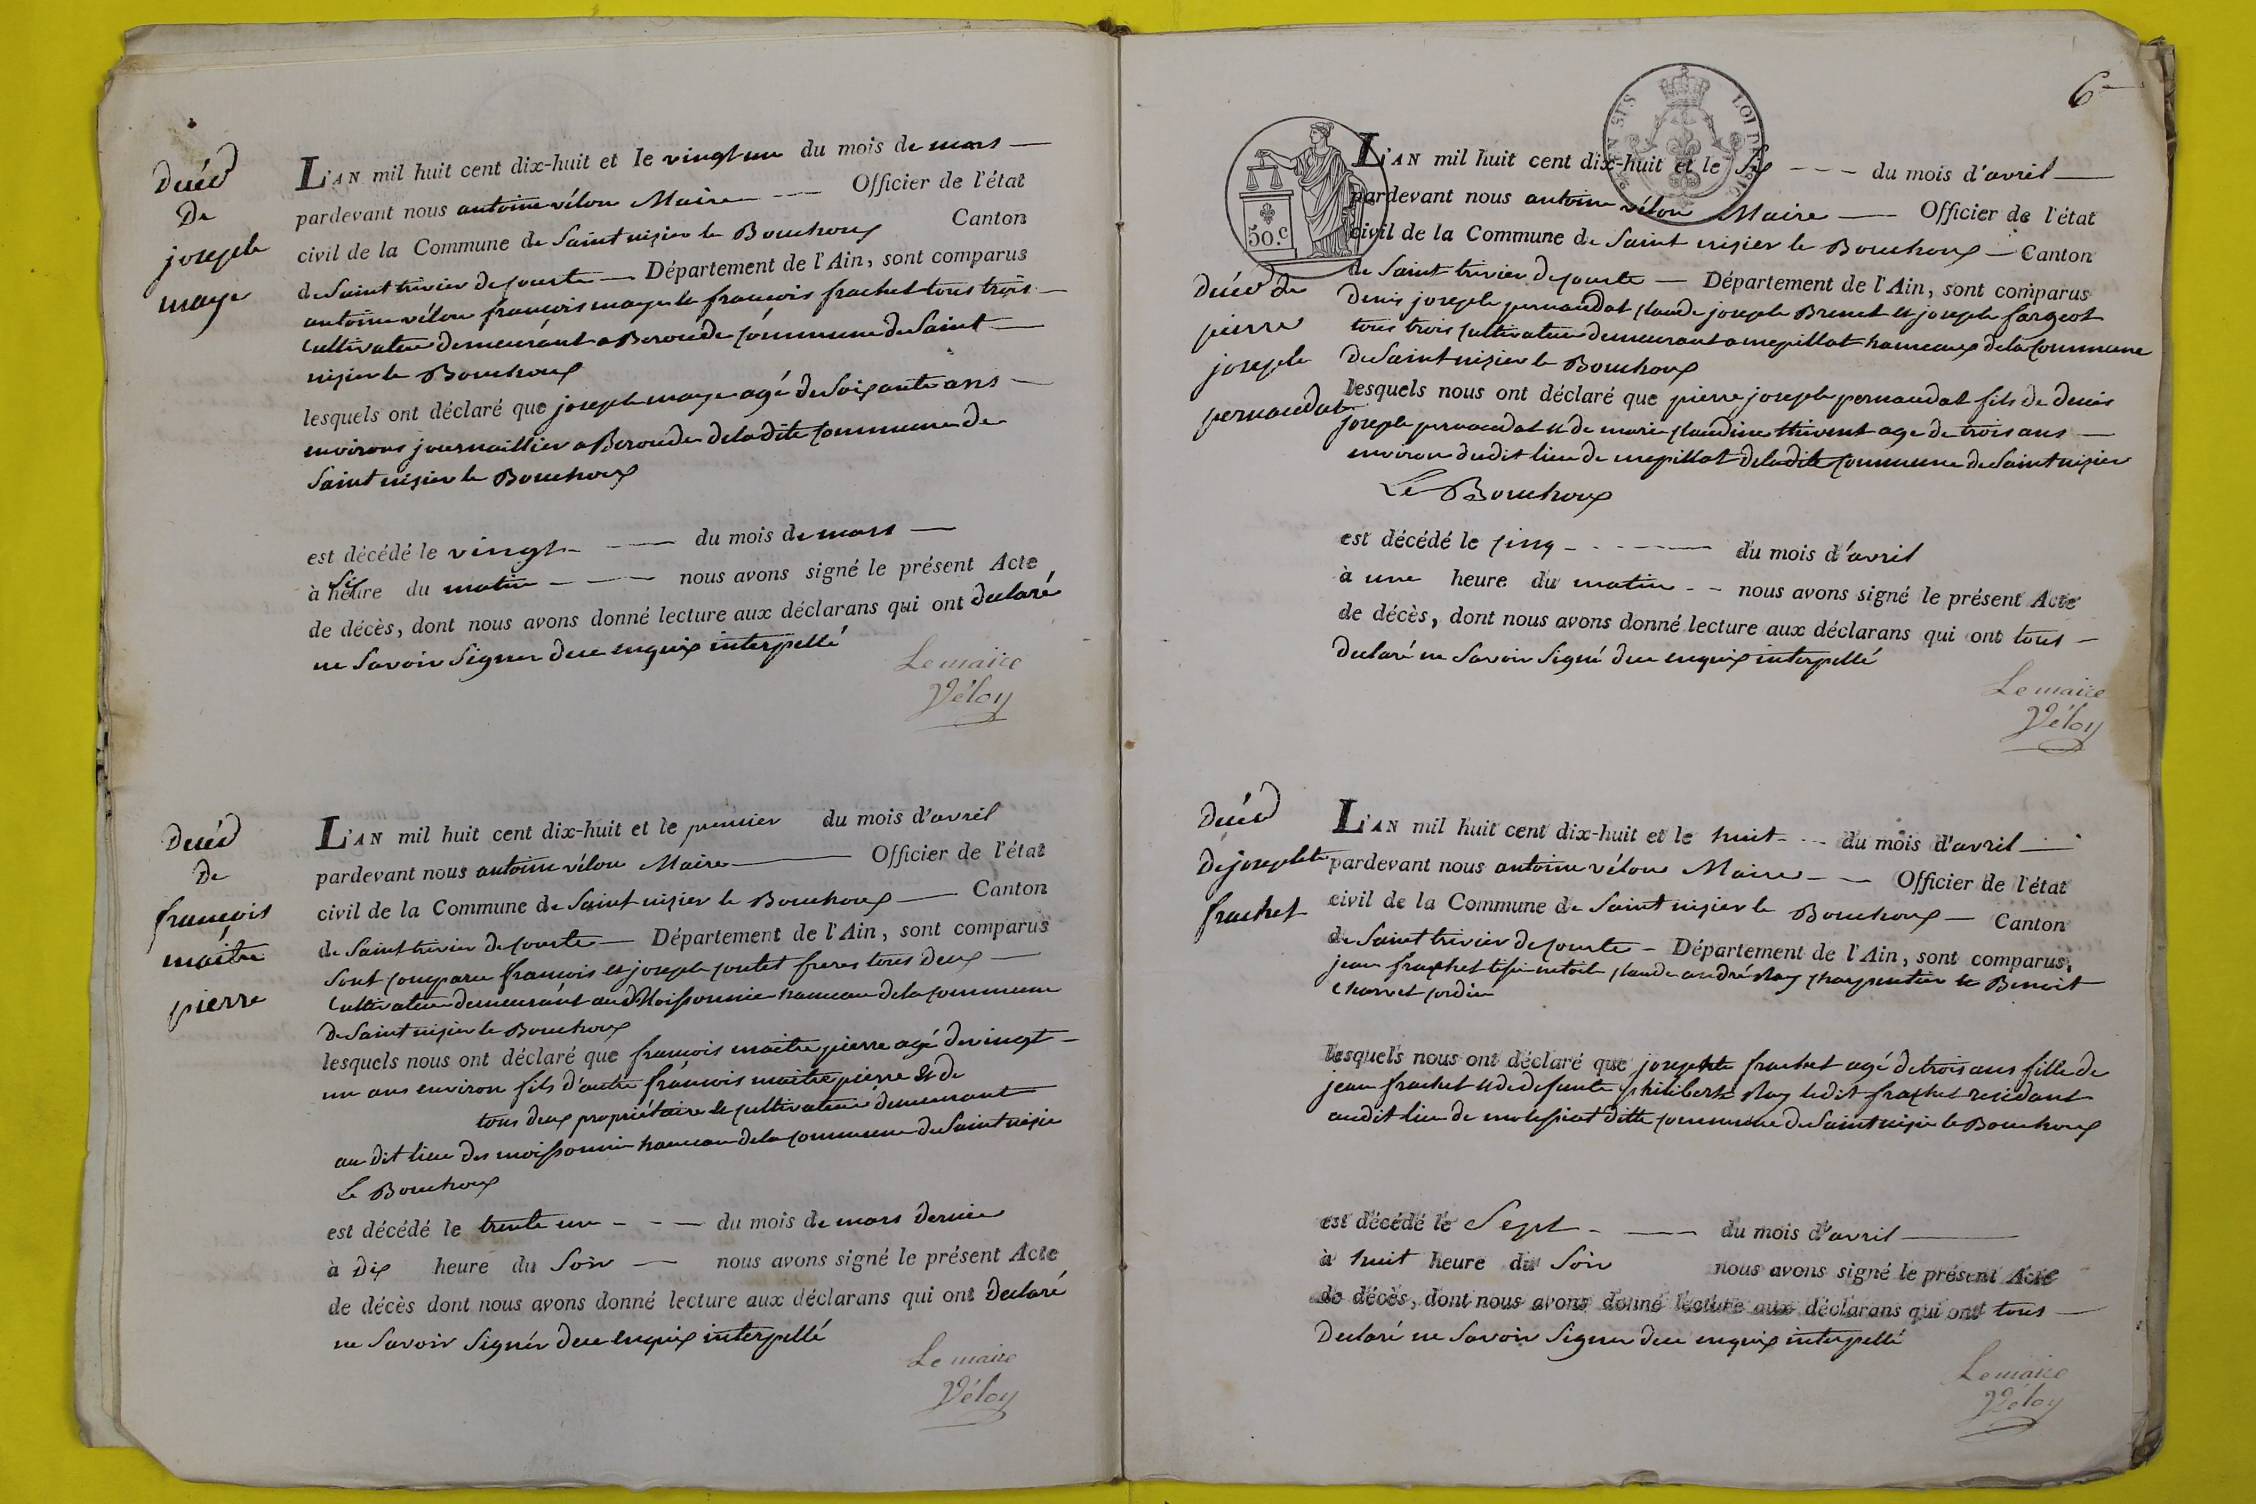 décéd
De
joseph
maye
L'AN mil huit cent dix-huit et le vingt un du mois de mars
pardevant nous antoine vélon Maire Officier de l'état
civil de la Commune de Saint nisier le Bouchoux Canton
de Saint trivier de courte Département de l'Ain, sont comparus
antoine vélon françois maye et françois frachet tous trois
cultivateur demeurant a Beroude commune de Saint
nisier le Bouchoux
lesquels ont déclaré que joseph maye agé de Soixante ans
environs journaillier a Beroude de ladite commune de
Saint nisier le Bouchoux
est décédé le vingt du mois de mars
à Six heure du matin nous avons signé le présent Acte
de décès, dont nous avons donné lecture aux déclarans qui ont declaré
ne Savoir Signer de ce enquix interpellé
Le maire
Véloy
Décéd
De
françois
maitre
pierre
L'AN mil huit cent dix-huit et le premier du mois d'avril
pardevant nous antoine vélon Maire Officier de l'état
civil de la Commune de Saint nisier le Bouchoux Canton
de Saint trivier de courte Département de l'Ain, sont comparus
Sont comparu françois et joseph contet freres tous deux
cultivateur demeurant aud Moissonnie hameau de la commune
De Saint nisier le Bouchoux
lesquels nous ont déclaré que françois maitre pierre agé de vingt
un ans environ fils d'autre françois maitre pierre et de
tous deux propriétaire et cultivateur demeurant
au dit lieu des moissonnier hameau de la commune de Saint nisier
Le Bouchoux
est décédé le trente un du mois de mars dernier
à Dix heure du Soir nous avons signé le présent Acte
de décès dont nous avons donné lecture aux déclarans qui ont Declaré
ne Savoir Signér de ce enquix interpellé
Le maire
Véloy
6
50.c
décéd de
pierre
joseph
pernaudat
L'AN mil huit cent dix-huit et le Six du mois d'avril
pardevant nous antoine vélon Maire Officier de l'état
civil de la Commune de Saint nisier le Bouchoux Canton
de Saint trivier de courte Département de l'Ain, sont comparus
Denis joseph pernaudat claude joseph Brunet et joseph fargeot
tous trois cultivateur demeurant a mepillat hameaux de la commune
de Saint nisier le Bouchoux
lesquels nous ont déclaré que pierre joseph pernaudat fils de denis
joseph pernaudat et de marie claudine thivent age de trois ans
environ dudit lieu de mepillat de ladite commune de Saint nisier
Le Bouchoux
est décédé le cinq du mois d'avril
à une heure du matin nous avons signé le présent Acte
de décès, dont nous avons donné lecture aux déclarans qui ont tous
declaré ne Savoir Signé de ce enquix interpellé
Le maire
Véloy
Décéd
De josephte
frachet
L'AN mil huit cent dix-huit et le huit du mois d'avril
pardevant nous antoine vélon Maire Officier de l'état
civil de la Commune de Saint nisier le Bouchoux Canton
de Saint trivier de courte Département de l'Ain, sont comparus,
jean frachet claude andré charpentier et Benoit
Charvet
lesquels nous ont déclaré que josephte frachet agé de trois ans fille de
jean frachet et de defunte philiberte ledit frachet residant
audit lieu de ditte commune de Saint nisier le Bouchoux
est décédé le Sept du mois d'avril
à huit heure du Soir nous avons signé le présent Acte
de décès, dont nous avons donné lecture aux déclarans qui ont tous
Declaré ne Savoir Signer de ce enquix interpellé
Le maire
Véloy